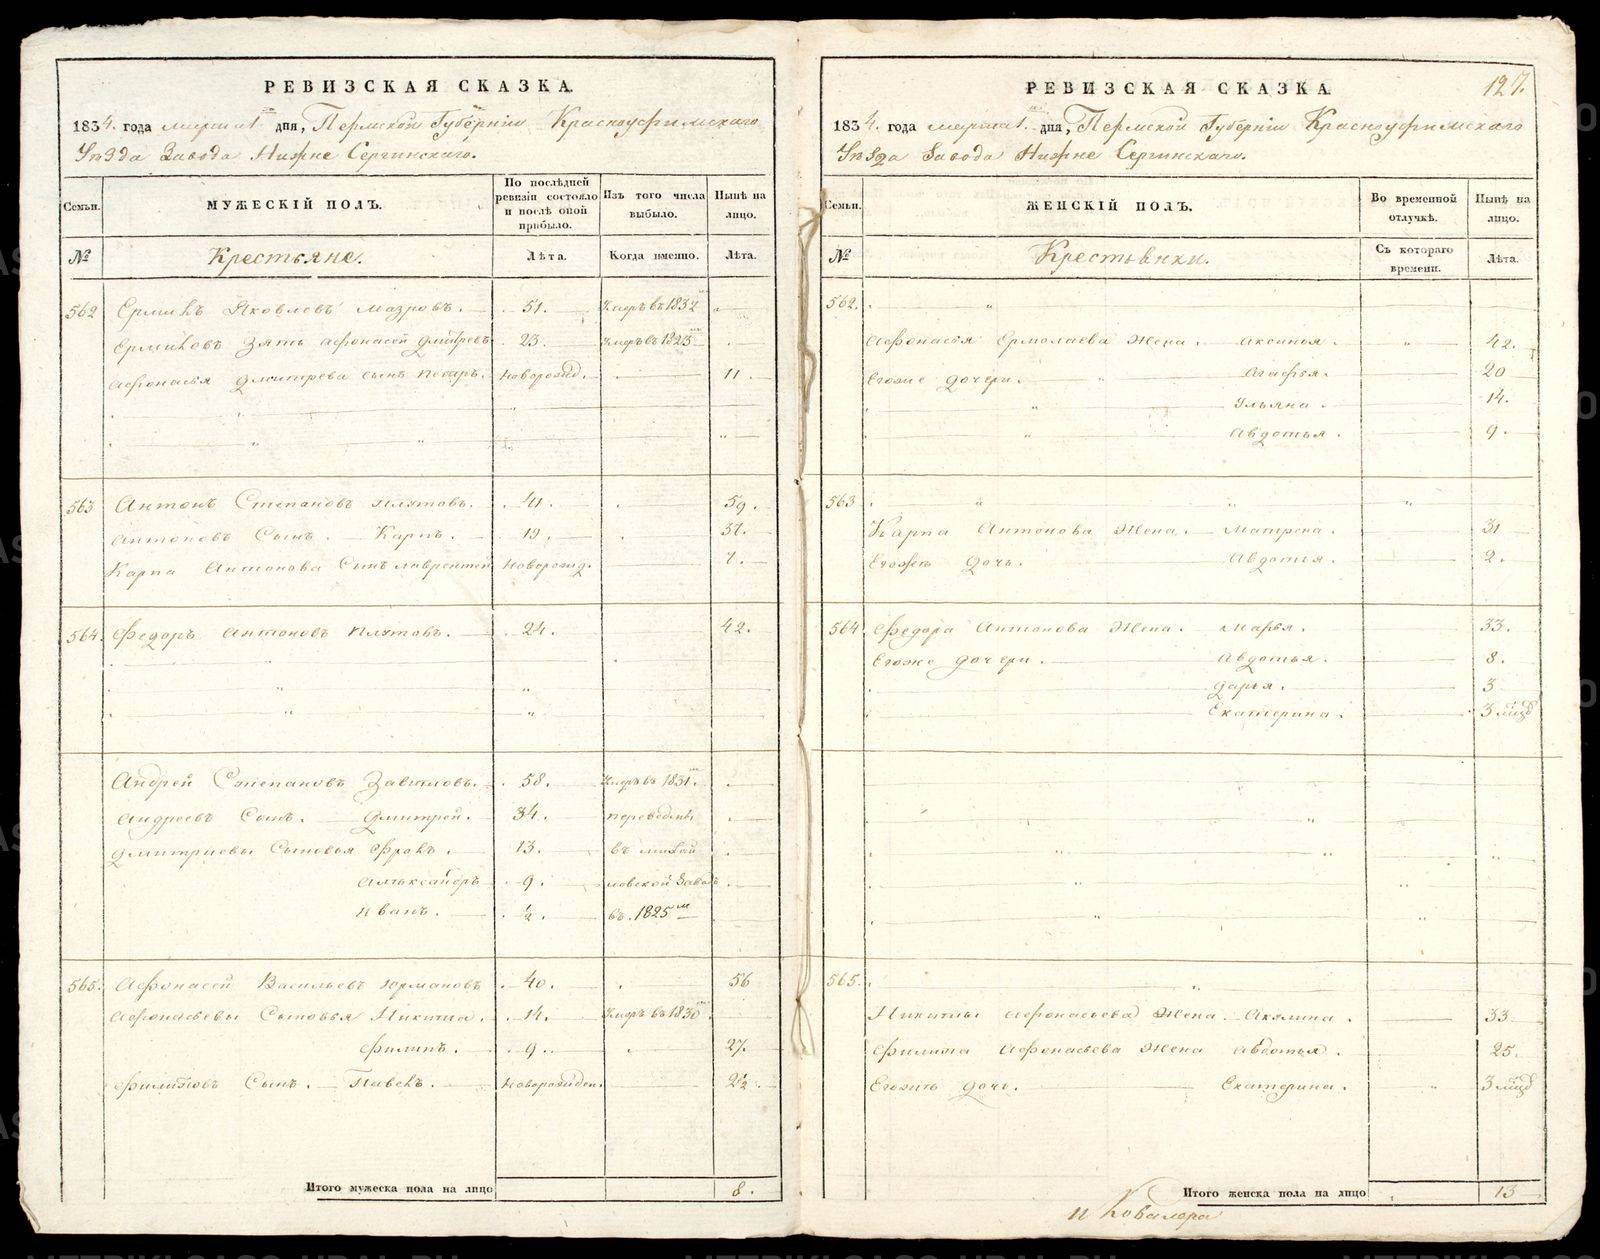 РЕВИЗСКАЯ СКАЗКА.
1834. года марта 1 дня, Пермской Губернiи Красноуфимскаго
Уѣзда Завода Нижне Сергинскаго.
Семьи.
МУЖЕСКIЙ ПОЛЪ.
По послѣдней ревизiи состояло и послѣ оной прибыло.
Изъ того числа выбыло.
Нынѣ на лицо.
№
Крестьяне.
Лѣта.
Когда именно.
Лѣта.
562 Ермилъ Яковлевъ 51. Умеръ въ 1832
Зять Афонасей Дмитревъ 23. Умеръ въ 1823
Афонасья Дмитрева сынъ Новорожд. 11.
563 Антонъ Степановъ Плутовъ. 41. 59.
Антоновъ Сынъ. Карпъ. 19. 37.
Карпа Антонова Сынъ Лаврентей Новорожд. 7.
564. Федоръ Антоновъ Плутовъ. 24. 42.
Андрей Степановъ 58. Умеръ въ 1831
Андреевъ Сынъ. Дмитрей. 34. переведены
Дмитриевы Сыновья Фролъ. 13. въ михай
Александръ 9. ловской Заводъ
Иванъ. ½. въ 1825 м
565. Афонасей Васильевъ Юрмановъ 40. 56
Афонасьевы Сыновья Никита. 14. Умеръ въ 1830
Филипъ. 9. 27.
Филиповъ Сынъ. Павелъ. Новорожден. 2½.
Итого мужеска пола на лицо 8.
РЕВИЗСКАЯ СКАЗКА.
127.
1834. года марта 1. дня, Пермской Губернiи Красноуфимскаго
Уѣзда Завода Нижне Сергинскаго.
Семьи.
ЖЕНСКIЙ ПОЛЪ.
Во временной отлучкѣ.
Нынѣ на лицо.
№
Крестьянки.
Съ котораго времени.
Лѣта.
562.
Афонасья Ермолаева Жена. Аксинья. 42.
Егоже дочери. Агафья. 20
Ульяна. 14.
Авдотья. 9.
563
Карпа Антонова Жена. Матрена. 31
Егожъ Дочь. Авдотья. 2.
564 Федора Антонова Жена. Марья. 33.
Егоже дочери. Авдотья. 8.
Дарья. 3
Екатерина. 3 мѣсц
565.
Никиты Афонасьева Жена. Акулина. 33
Филипа Афонасьева Жена Авдотья. 25.
дочь. Екатерина. 3 мѣсц
Итого женска пола на лицо 13